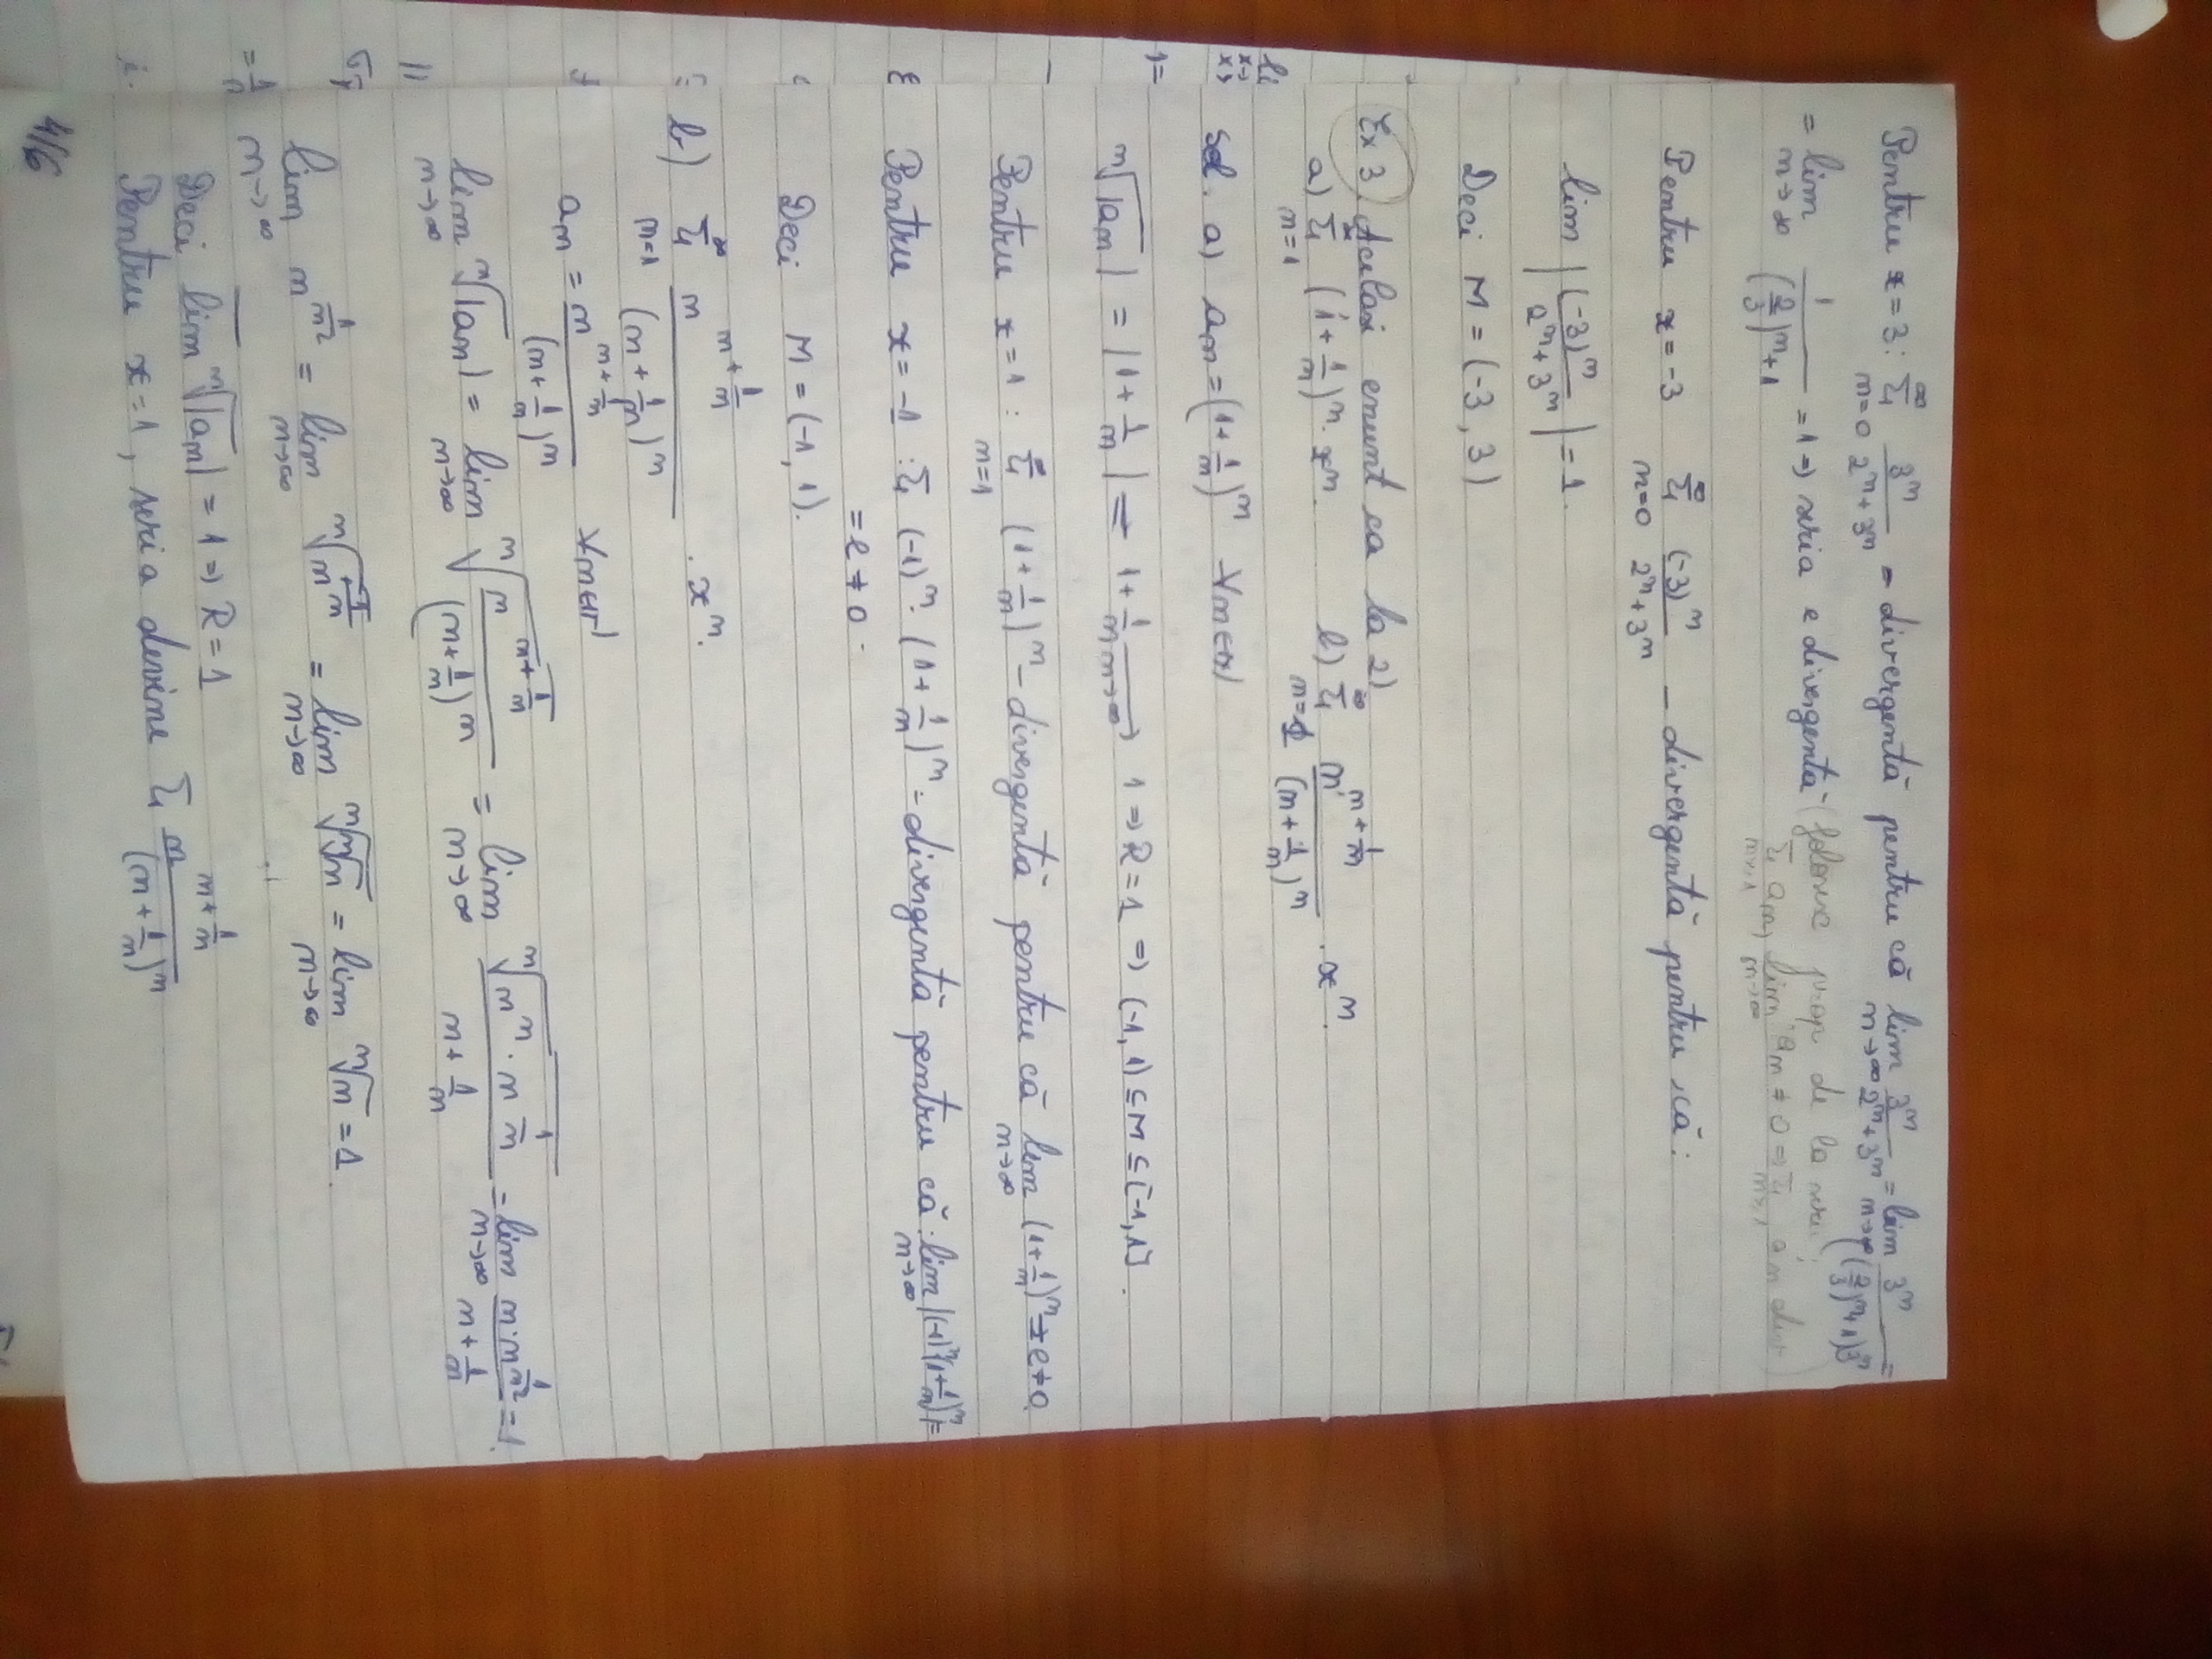 Pentru x = 3: ∑_{n=0}^{∞} 3^n/(2^n+3^n) - divergentă pentru că lim_{n→∞} 3^n/(2^n+3^n) = lim_{n→∞} 3^n/(((2/3)^n+1)3^n) =
= lim_{n→∞} 1/((2/3)^n+1) = 1 ⇒ seria e divergentă (folosesc prop de la serii
∑_{n≥1} a_n, lim_{n→∞} a_n ≠ 0 ⇒ ∑_{n≥1} a_n div)
Pentru x = -3 ∑_{n=0}^{∞} (-3)^n/(2^n+3^n) - divergentă pentru că:
lim |(-3)^n/(2^n+3^n)| = 1.
Deci M = (-3, 3)
Ex 3) Același enunt ca la 2)
a) ∑_{n=1}^{∞} (1+1/n)^n · x^n. b) ∑_{n=1}^{∞} n^{n+1/n}/(n+1/n)^n · x^n.
Sol. a) a_n = (1+1/n)^n ∀n∈ℕ
ⁿ√|a_n| = |1+1/n| = 1+1/n →_{n→∞} 1 ⇒ R = 1 ⇒ (-1, 1) ⊆ M ⊆ [-1, 1].
Pentru x = 1 : ∑_{n=1}^{∞} (1+1/n)^n - divergentă pentru că lim_{n→∞} (1+1/n)^n → e ≠ 0
Pentru x = -1 : ∑ (-1)^n · (1+1/n)^n - divergentă pentru că: lim_{n→∞} |(-1)^n (1+1/n)^n| =
= e ≠ 0.
Deci M = (-1, 1).
b) ∑_{n=1}^{∞} n^{n+1/n}/(n+1/n)^n · x^n.
a_n = n^{n+1/n}/(n+1/n)^n ∀n∈ℕ
lim_{n→∞} ⁿ√|a_n| = lim_{n→∞} ⁿ√(n^{n+1/n}/(n+1/n)^n) = lim_{n→∞} ⁿ√(n^n · n^{1/n})/(n+1/n) = lim_{n→∞} n·n^{1/n²}/(n+1/n) = 1.
lim_{n→∞} n^{1/n²} = lim_{n→∞} ⁿ√(n^{1/n}) = lim_{n→∞} ⁿ√(ⁿ√n) = lim_{n→∞} ⁿ√n = 1.
Deci lim ⁿ√|a_n| = 1 ⇒ R = 1
Pentru x = 1, seria devine ∑ n^{n+1/n}/(n+1/n)^n
4/6